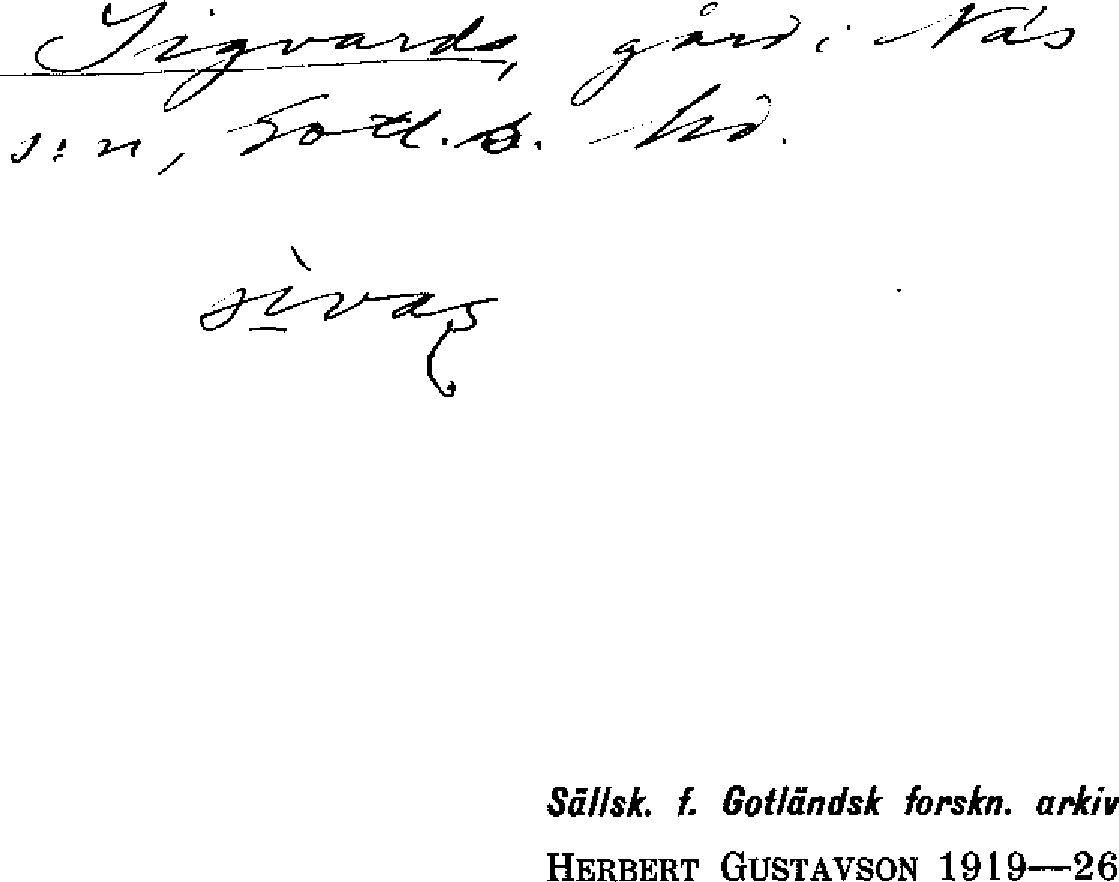 Sigvards, gård i Näs
s:n, Gotl. S. hd.
sìvas
Sällsk. f. Gotländsk forskn. arkiv
HERBERT GUSTAVSON 1919—26